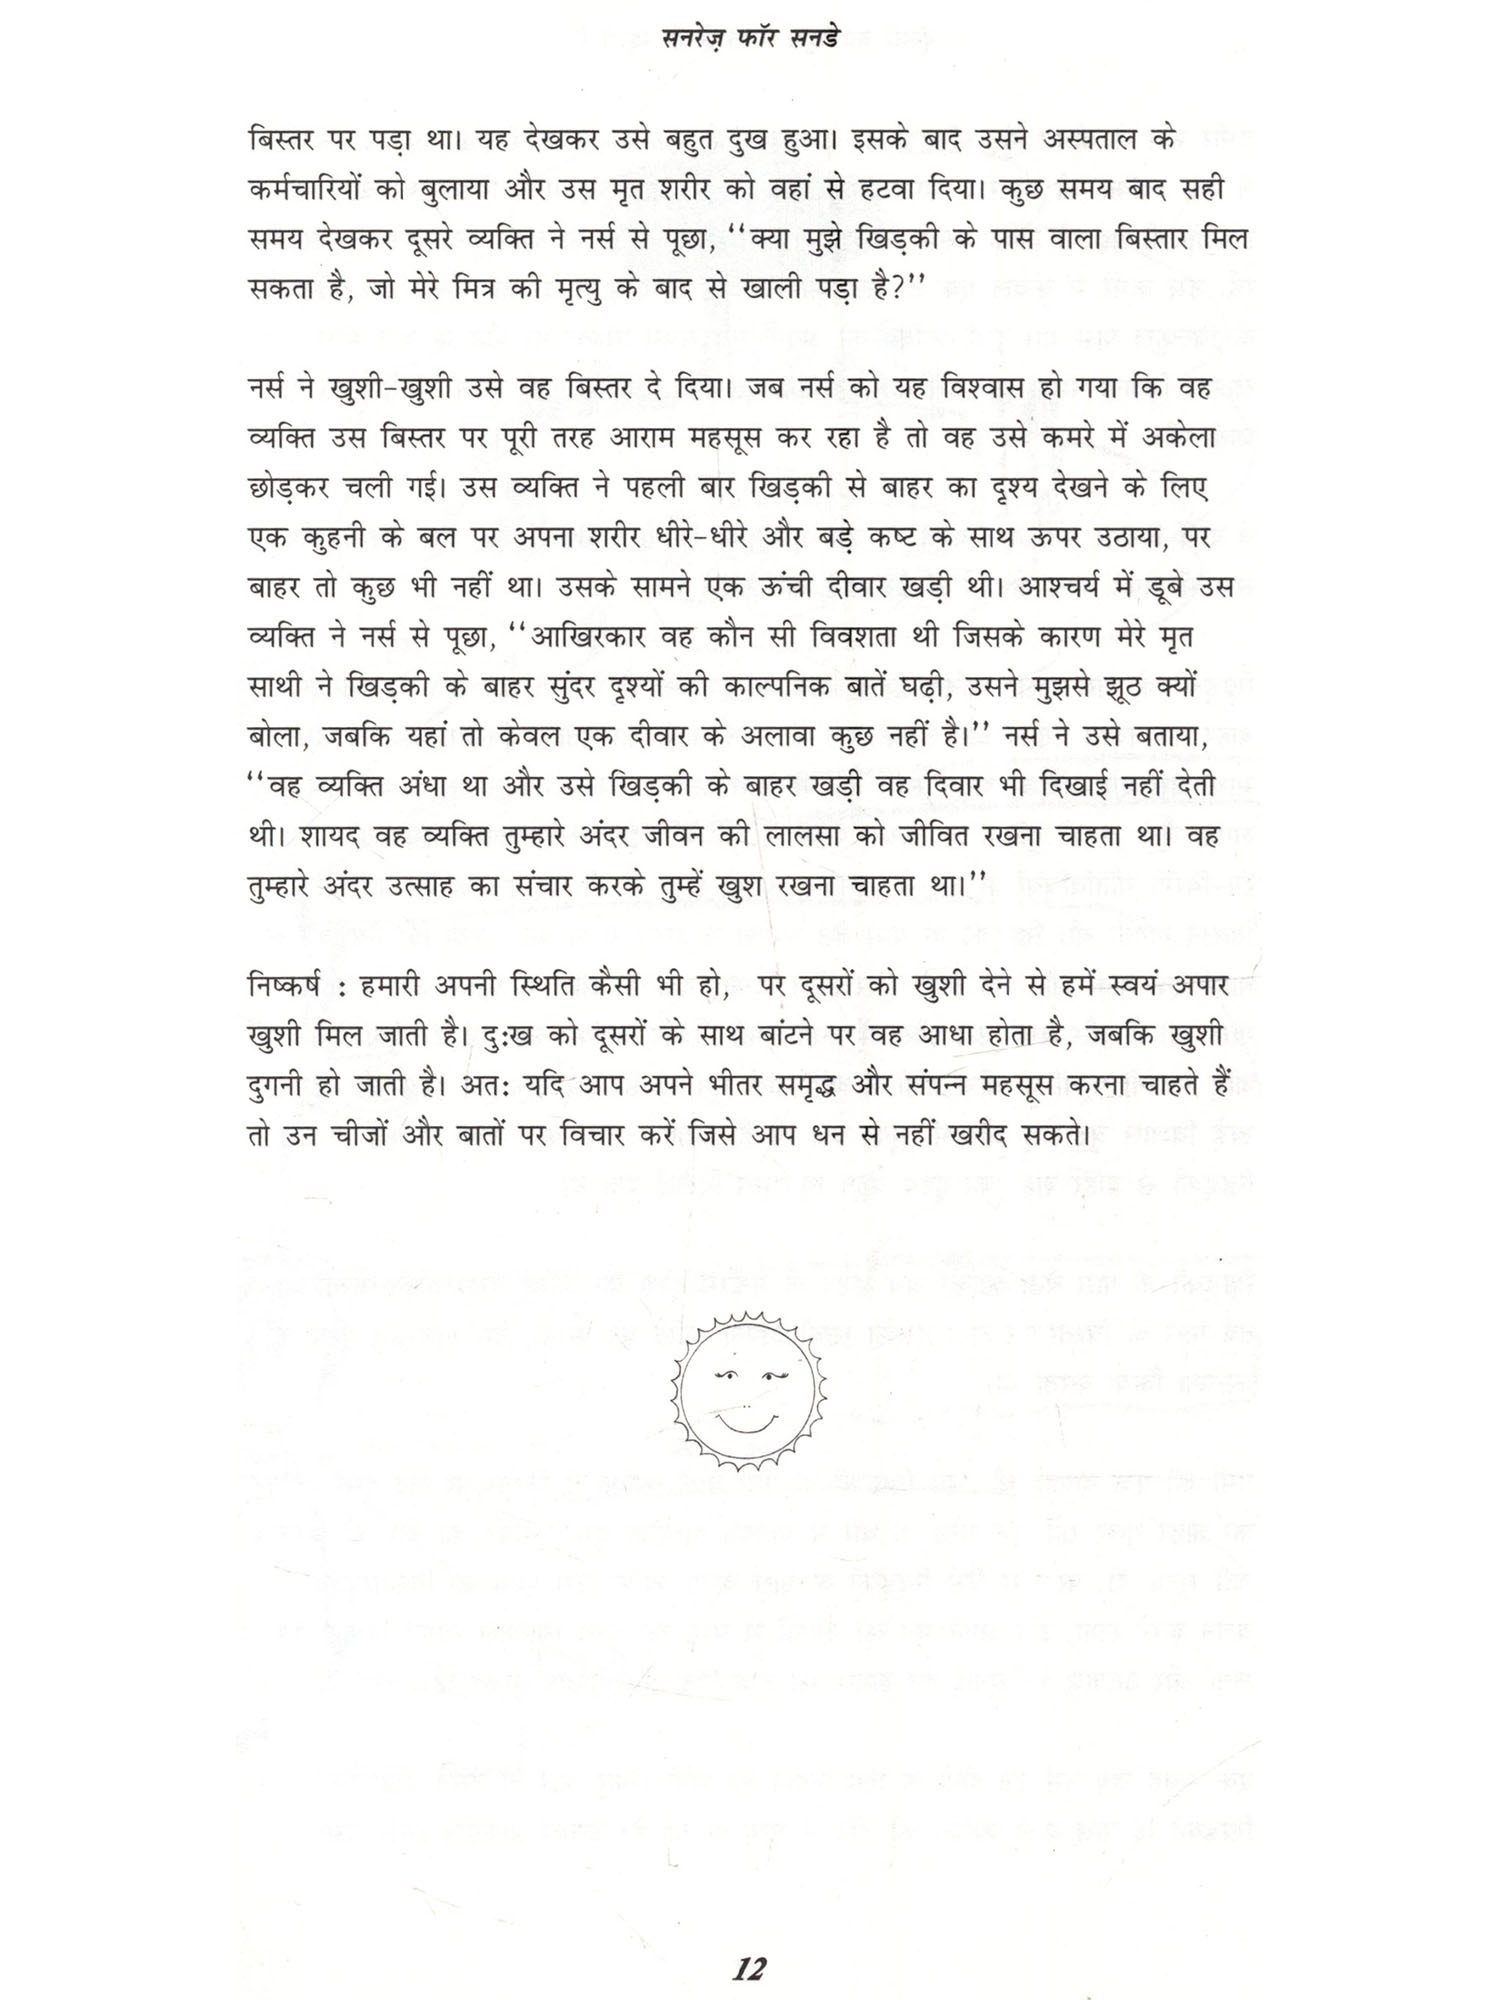 सनरेज़ फॉर सनडे
बिस्तर पर पड़ा था। यह देखकर उसे बहुत दुख हुआ। इसके बाद उसने अस्पताल के
कर्मचारियों को बुलाया और उस मृत शरीर को वहां से हटवा दिया। कुछ समय बाद सही
समय देखकर दूसरे व्यक्ति ने नर्स से पूछा, ‘‘क्या मुझे खिड़की के पास वाला बिस्तार मिल
सकता है, जो मेरे मित्र की मृत्यु के बाद से खाली पड़ा है?’’
नर्स ने खुशी-खुशी उसे वह बिस्तर दे दिया। जब नर्स को यह विश्वास हो गया कि वह
व्यक्ति उस बिस्तर पर पूरी तरह आराम महसूस कर रहा है तो वह उसे कमरे में अकेला
छोड़कर चली गई। उस व्यक्ति ने पहली बार खिड़की से बाहर का दृश्य देखने के लिए
एक कुहनी के बल पर अपना शरीर धीरे-धीरे और बड़े कष्ट के साथ ऊपर उठाया, पर
बाहर तो कुछ भी नहीं था। उसके सामने एक ऊंची दीवार खड़ी थी। आश्चर्य में डूबे उस
व्यक्ति ने नर्स से पूछा, ‘‘आखिरकार वह कौन सी विवशता थी जिसके कारण मेरे मृत
साथी ने खिड़की के बाहर सुंदर दृश्यों की काल्पनिक बातें घढ़ी, उसने मुझसे झूठ क्यों
बोला, जबकि यहां तो केवल एक दीवार के अलावा कुछ नहीं है।’’ नर्स ने उसे बताया,
‘‘वह व्यक्ति अंधा था और उसे खिड़की के बाहर खड़ी वह दिवार भी दिखाई नहीं देती
थी। शायद वह व्यक्ति तुम्हारे अंदर जीवन की लालसा को जीवित रखना चाहता था। वह
तुम्हारे अंदर उत्साह का संचार करके तुम्हें खुश रखना चाहता था।’’
निष्कर्ष : हमारी अपनी स्थिति कैसी भी हो, पर दूसरों को खुशी देने से हमें स्वयं अपार
खुशी मिल जाती है। दु:ख को दूसरों के साथ बांटने पर वह आधा होता है, जबकि खुशी
दुगनी हो जाती है। अत: यदि आप अपने भीतर समृद्ध और संपन्न महसूस करना चाहते हैं
तो उन चीजों और बातों पर विचार करें जिसे आप धन से नहीं खरीद सकते।
12